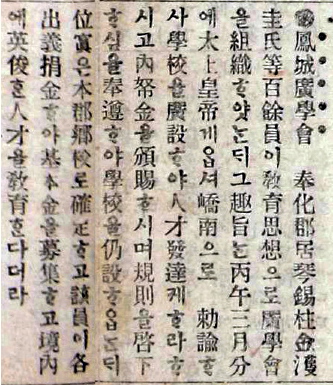 ●鳳城廣學會　奉化郡居琴錫柱金濩
圭氏等百餘員이敎育思想으로廣學會
을組織ᄒᆞ얏ᄂᆞᆫᄃᆡ그趣旨ᄂᆞᆫ丙午三月分
에太上皇帝게옵셔嶠南으로　勅諭ᄒᆞ
사學校을廣設ᄒᆞ야人才發達케ᄒᆞ라ᄒᆞ
시고內帑金을頒賜ᄒᆞ시며規則을啓下
ᄒᆞ심을奉遵ᄒᆞ야學校을仍設ᄒᆞ옵ᄂᆞᆫᄃᆡ
位寘은本郡鄕校로確定ᄒᆞ고該員이各
出義捐金ᄒᆞ야基本金을募集ᄒᆞ고境內
에英俊ᄒᆞᆫ人才을敎育ᄒᆞᆫ다더라